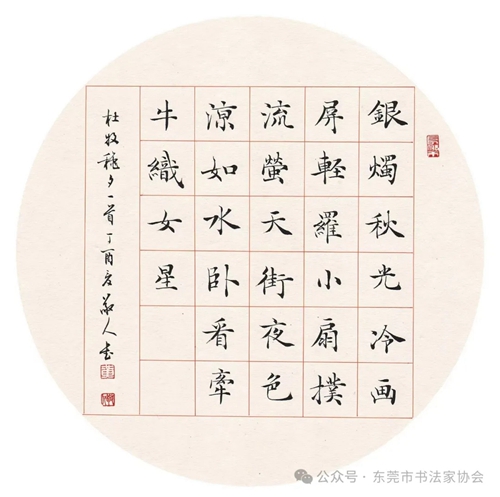 銀燭秋光冷画
屏輕羅小扇撲
流螢天街夜色
涼如水卧看牽
牛織女星
杜牧秋夕一首丁酉
人书
公众号·东莞市书法家协会